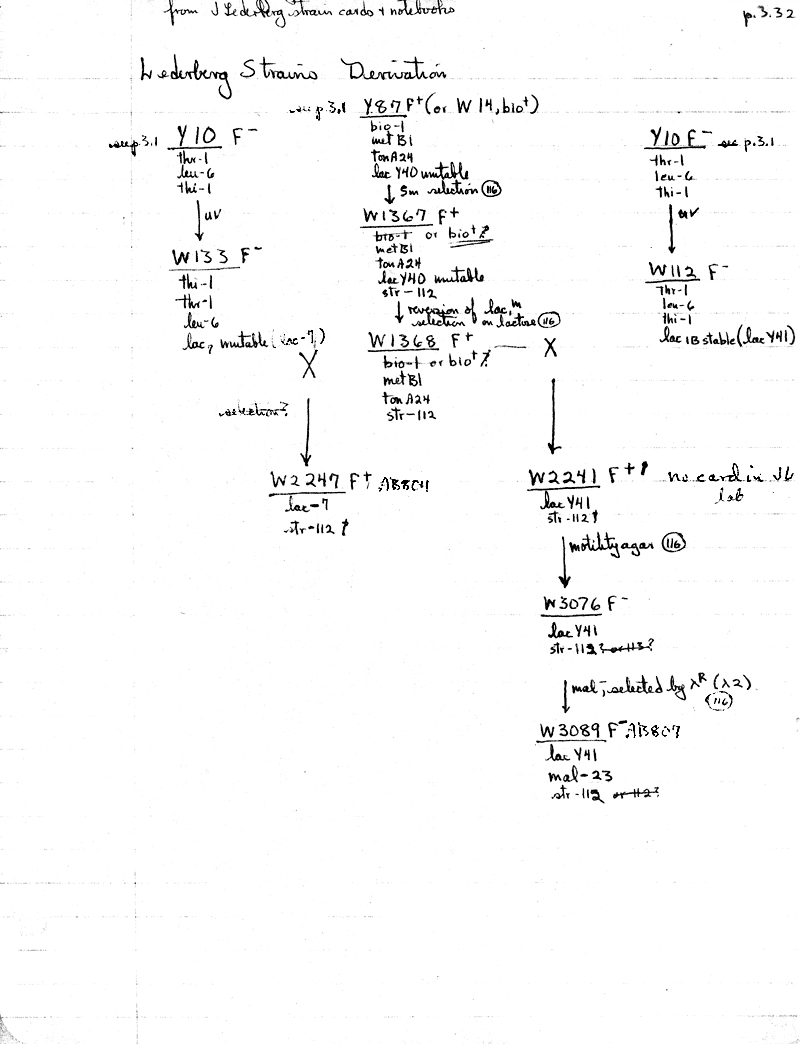 from J Lederberg strain cards + notebooks
p.3.32
Lederberg Strains Derivation
see p.3.1 Y10 F-
thr-1
leu-6
thi-1
↓ uv
W133 F-
thi-1
thr-1
leu-6
lac7 mutable (lac-7)
X
selection?
see p.3.1 Y87 F+ (or W14, bio+)
bio-1
metB1
tonA24
lac Y40 mutable
↓ Sm selection (116)
W1367 F+
bio-1 or bio+?
metB1
tonA24
lac Y40 mutable
str-112
↓ reversion of lac, m
selection on lactose (116)
W1368 F+ — X
bio-1 or bio+?
metB1
tonA24
str-112
Y10 F- see p.3.1
thr-1
leu-6
thi-1
↓ uv
W112 F-
thr-1
leu-6
thi-1
lac 1B stable (lac Y41)
W2247 F+ AB804
lac-7
str-112
W2241 F+ no card in JL
lab
lac Y41
str-112
↓ motility agar (116)
W3076 F-
lac Y41
str-112? or 113?
↓ mal-, selected by λR (λ2)
(116)
W3089 F- AB807
lac Y41
mal-23
str-112 or 113?